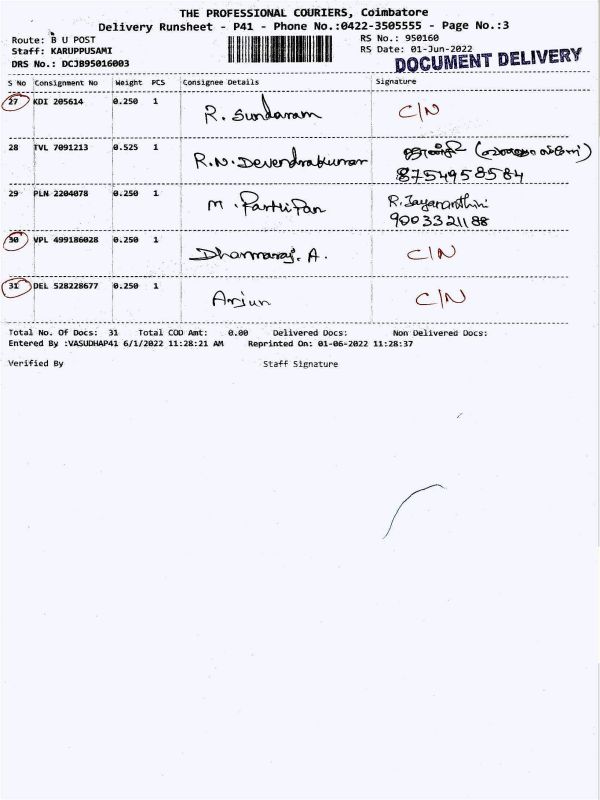 THE PROFESSIONAL COURIERS, Coimbatore
Delivery Runsheet - P41 - Phone No.:0422-3505555 - Page No.:3
Route: B U POST RS No.: 950160
Staff: KARUPPUSAMI RS Date: 01-Jun-2022
DRS No.: DCJB95016003 DOCUMENT DELIVERY
S No Consignment No Weight PCS Consignee Details Signature
27 KDI 205614 0.250 1 R. Sundaram C/N
28 TVL 7091213 0.525 1 R.N. Devendrakumar
8754958584
29 PLN 2204078 0.250 1 M. Partripan R. Jayananthini
9003321188
30 VPL 499186028 0.250 1 Dhanmaraj. A. C/N
31 DEL 528228677 0.250 1 Arjun C/N
Total No. Of Docs: 31 Total COD Amt: 0.00 Delivered Docs: Non Delivered Docs:
Entered By :VASUDHAP41 6/1/2022 11:28:21 AM Reprinted On: 01-06-2022 11:28:37
Verified By Staff Signature